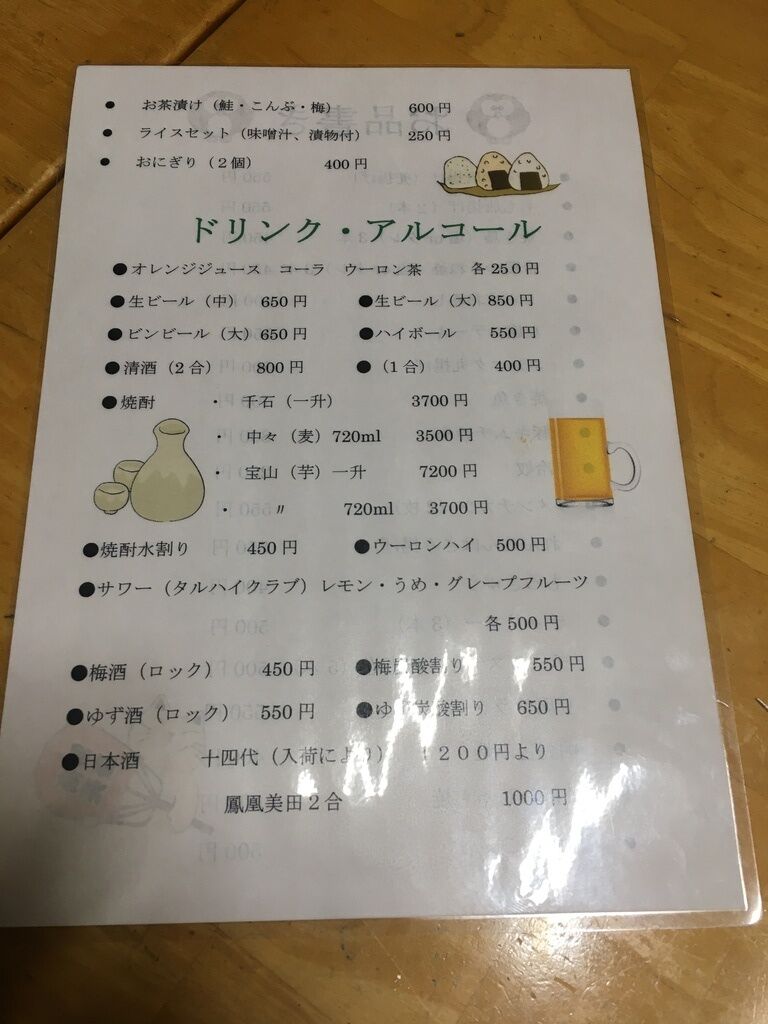 ● お茶漬け（鮭・こんぶ・梅） 600円
● ライスセット（味噌汁、漬物付） 250円
● おにぎり（２個） 400円
ドリンク・アルコール
●オレンジジュース コーラ ウーロン茶 各250円
●生ビール（中） 650円 ●生ビール（大）850円
●ビンビール（大）650円 ●ハイボール 550円
●清酒（2合） 800円 ●（1合） 400円
●焼酎 ・ 千石（一升） 3700円
・ 中々（麦）720ml 3500円
・ 宝山（芋）一升 7200円
・ 〃 720ml 3700円
●焼酎水割り 450円 ●ウーロンハイ 500円
●サワー（タルハイクラブ）レモン・うめ・グレープフルーツ
各500円
●梅酒（ロック） 450円 酸割り 550円
●ゆず酒（ロック） 550円 炭酸割り 650円
●日本酒 十四代（入荷により） 200円より
鳳凰美田２合 1000円